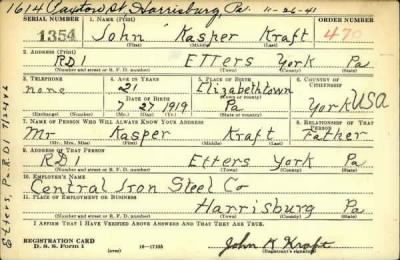 1614 Paxton St Harrisburg, Pa. 11-26-41
SERIAL NUMBER 1. NAME (Print) ORDER NUMBER
1354 John Kasper Kraft 470
(First) (Middle) (Last)
2. ADDRESS (Print)
RD1 Etters York Pa
(Number and street or R. F. D. number) (Town) (County) (State)
3. TELEPHONE 4. AGE IN YEARS 5. PLACE OF BIRTH 6. COUNTRY OF CITIZENSHIP
none 21 Elizabethtown
DATE OF BIRTH (Town or county)
7 27 1919 Pa York USA
(Exchange) (Number) (Mo.) (Day) (Yr.) (State or country)
7. NAME OF PERSON WHO WILL ALWAYS KNOW YOUR ADDRESS 8. RELATIONSHIP OF THAT PERSON
Mr Kasper Kraft Father
(Mr., Mrs., Miss) (First) (Middle) (Last)
9. ADDRESS OF THAT PERSON
RD1 Etters York Pa
(Number and street or R. F. D. number) (Town) (County) (State)
10. EMPLOYER'S NAME
Central Iron Steel Co
11. PLACE OF EMPLOYMENT OR BUSINESS
Harrisburg Pa
(Number and street or R. F. D. number) (Town) (County) (State)
I AFFIRM THAT I HAVE VERIFIED ABOVE ANSWERS AND THAT THEY ARE TRUE.
REGISTRATION CARD
D. S. S. Form 1 (over) 16-17105 John K Kraft
(Registrant's signature)
Etters, Pa. R.D1